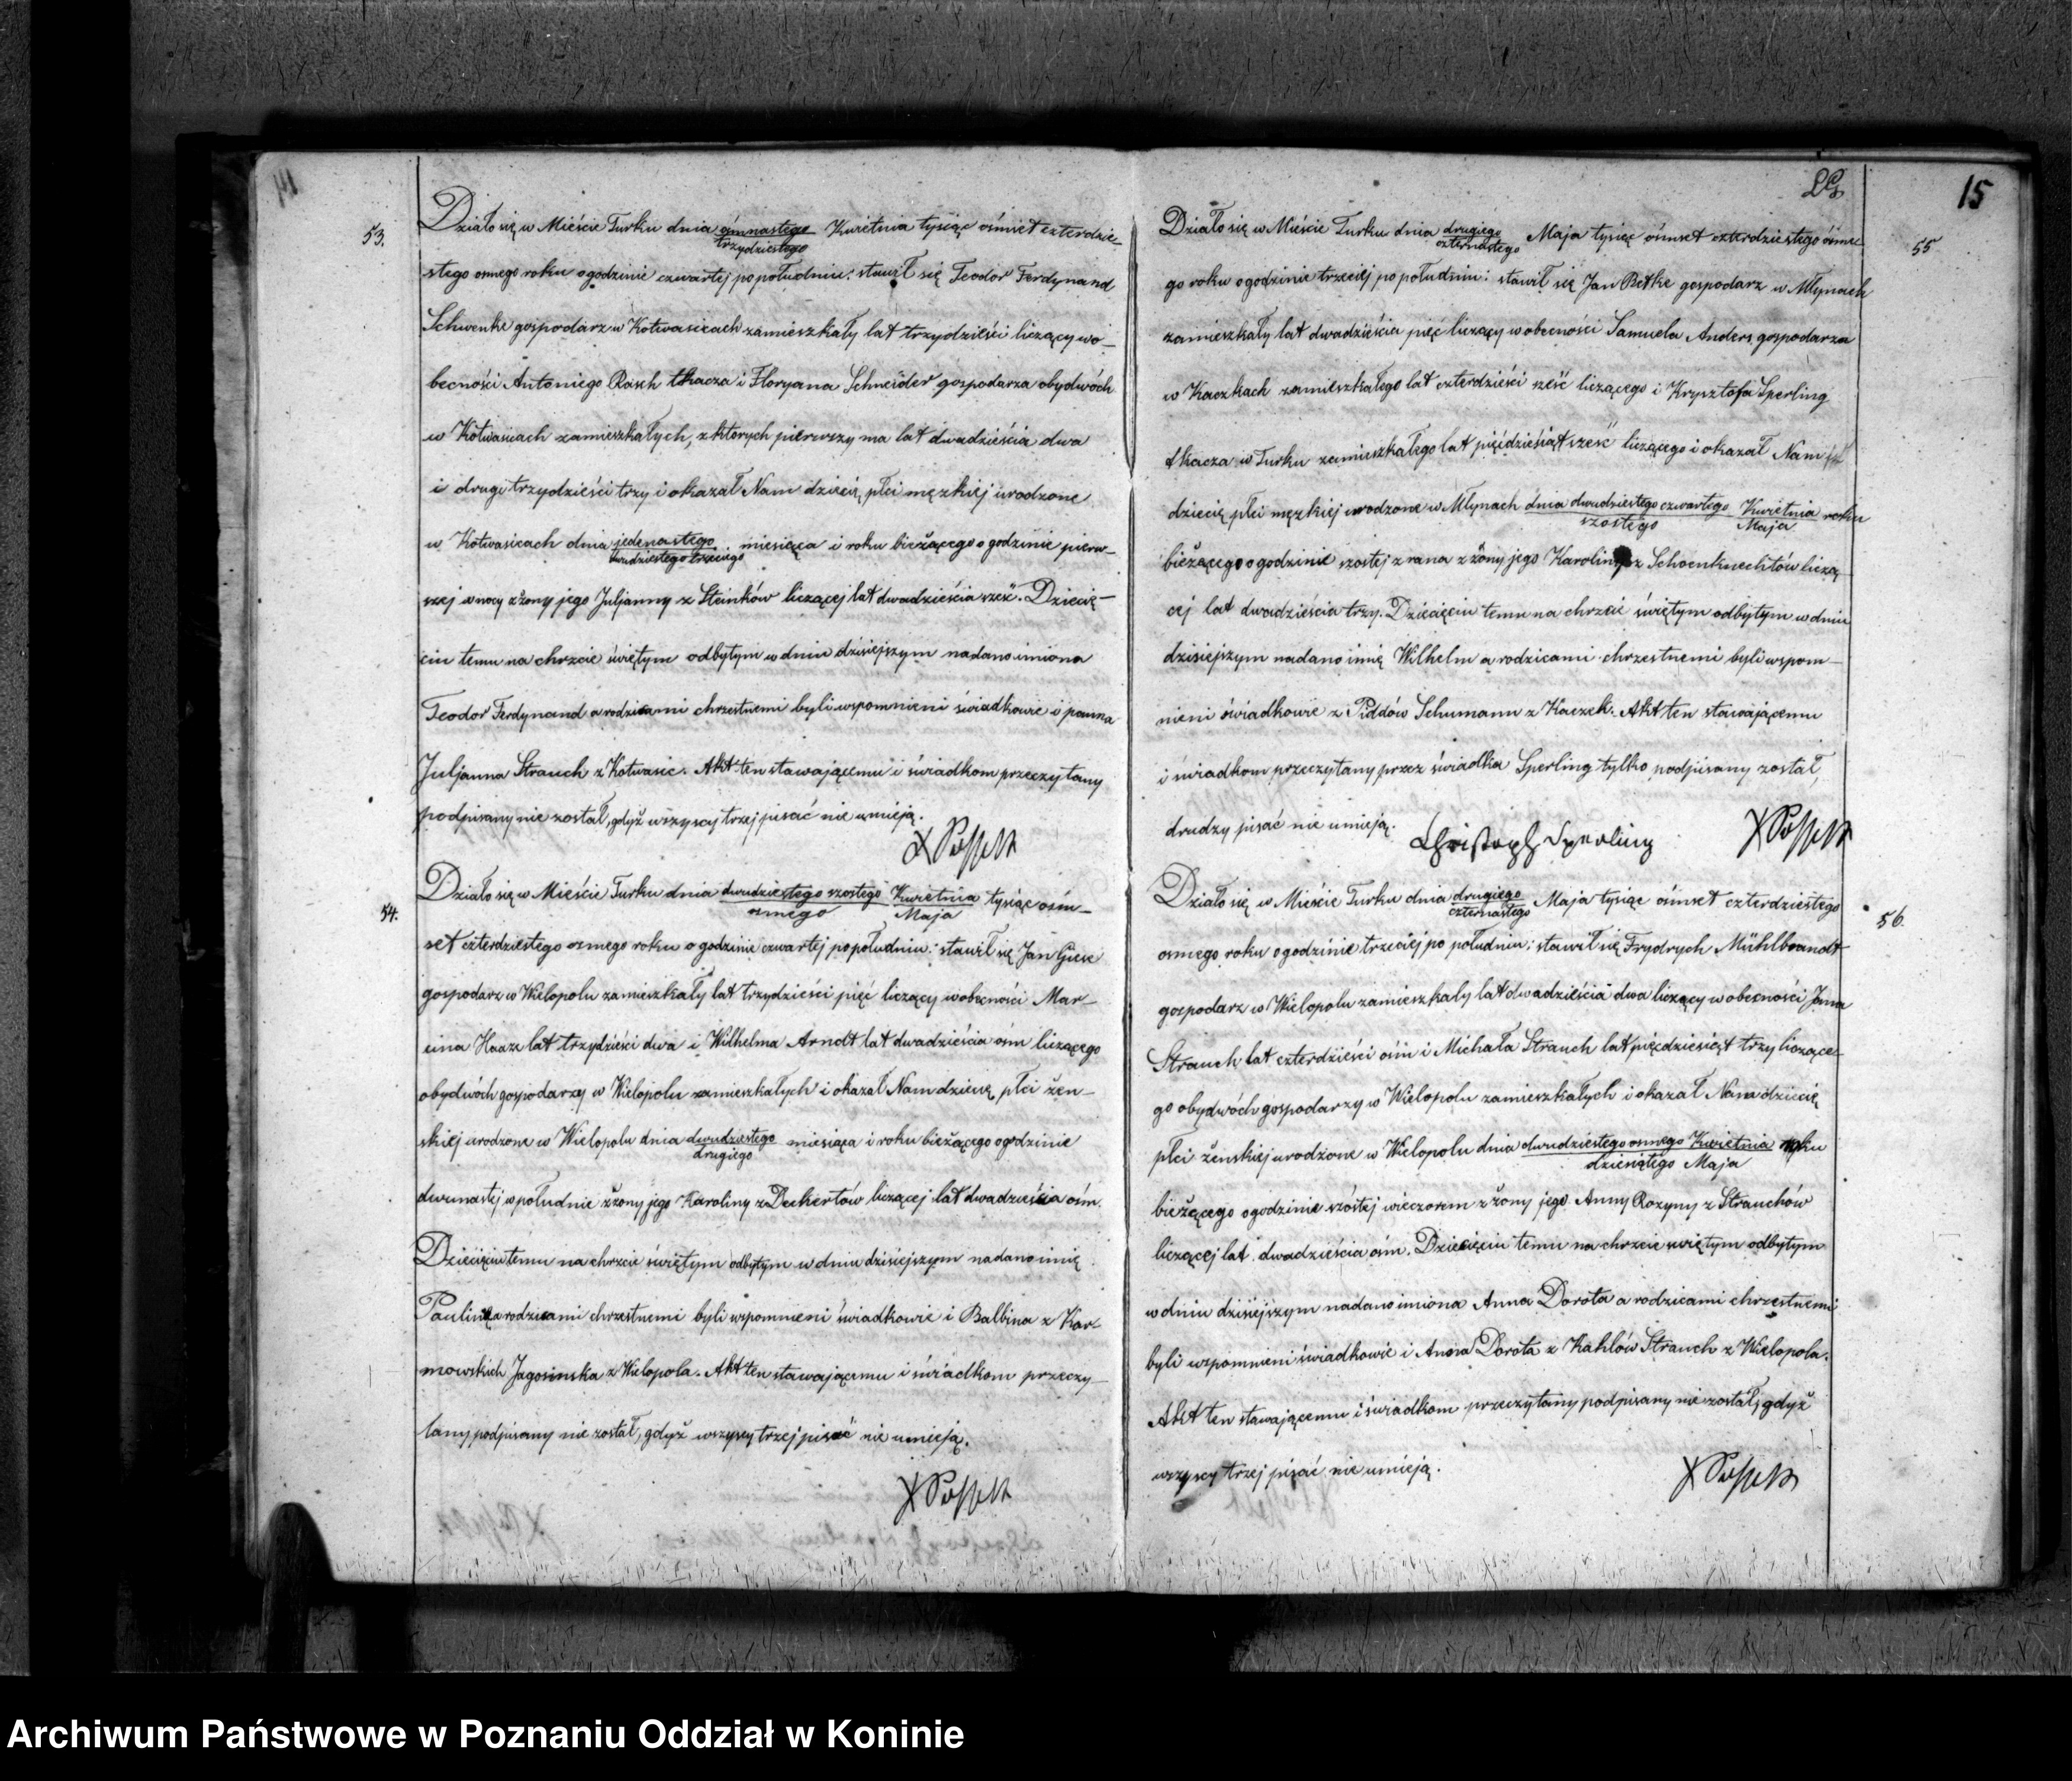 14
53.
Działo się w Mieście Turku dnia ośmnastego Kwietnia tysiąc ośmset czterdzie-
trzydziestego
stego osmego roku o godzinie czwartej popołudniu: stawił się Teodor Ferdynand
Schwenke gospodarz w Kotwasicach zamieszkały lat trzydzieści liczący wo-
becności Antoniego Rasch tkacza i Floryana Schneider gospodarza obydwóch
w Kotwasicach zamieszkałych, z których pierwszy ma lat dwadzieścia dwa
i drugi trzydzieści trzy i okazał Nam dziecię płci męzkiej urodzone
w Kotwasicach dnia jedenastego miesiąca i roku bieżącego o godzinie pierw-
dwudziestego trzeciego
szej w nocy z żony jego Juljanny z Steinków liczącej lat dwadzieścia sześć. Dziecię-
ciu temu na chrzcie świętym odbytym w dniu dzisiejszym nadano imiona
Teodor Ferdynand a rodzicami chrzestnemi byli wspomnieni świadkowie i panna
Juljanna Strauch z Kotwasic. Akt ten stawającemu i świadkom przeczytany
podpisany nie został, gdyż wszyscy trzej pisać nie umieją.
54.
Działo się w Mieście Turku dnia dwudziestego szostego Kwietnia tysiąc ośm-
osmego Maja
set czterdziestego osmego roku o godzinie czwartej popołudniu: stawił się Jan Giese
gospodarz w Wielopolu zamieszkały lat trzydzieści pięć liczący wobecności Mar-
cina Haaze lat trzydzieści dwa i Wilhelma Arndt lat dwadzieścia ośm liczącego
obydwóch gospodarzy w Wielopolu zamieszkałych i okazał Nam dziecię płci żen-
skiej urodzone w Wielopolu dnia dwudziestego miesiąca i roku bieżącego o godzinie
drugiego
dwunastej w południe z żony jego Karoliny z Deckertów liczącej lat dwadzieścia ośm.
Dziecięciu temu na chrzcie świętym odbytym w dniu dzisiejszym nadano imię
Paulina a rodzicami chrzestnemi byli wspomnieni świadkowie i Balbina z Kar-
mowskich Jagosinska z Wielopola. Akt ten stawającemu i świadkom przeczy-
tany podpisany nie został, gdyż wszyscy trzej pisać nie umieją.
15
55
Działo się w Mieście Turku dnia drugiego Maja tysiąc ośmset czterdziestego ósme-
czternastego
go roku o godzinie trzeciej po południu: stawił się Jan Betke gospodarz w Młynach
zamieszkały lat dwadzieścia pięć liczący wobecności Samuela Anders gospodarza
w Kaczkach zamieszkałego lat czterdzieści sześć liczącego i Krysztofa Sperling
tkacza w Turku zamieszkałego lat pięćdziesiąt sześć liczącego i okazał Nam
dziecię płci męzkiej urodzone w Młynach dnia dwudziestego czwartego Kwietnia roku
szostego Maja
bieżącego o godzinie szostej z rana z żony jego Karoliny z Schoenknechtów liczą-
cej lat dwadzieścia trzy. Dziecięciu temu na chrzcie świętym odbytym w dniu
dzisiejszym nadano imię Wilhelm a rodzicami chrzestnemi byli wspom-
nieni świadkowie z Piddów Schumann z Kaczek. Akt ten stawającemu
i świadkom przeczytany przez świadka Sperling tylko podpisany został,
drudzy pisać nie umieją. Christoph Sperling
56.
Działo się w Mieście Turku dnia drugiego Maja tysiąc ośmset czterdziestego
czternastego
osmego roku o godzinie trzeciej po południu; stawił się Frydrych Mühlbrandt
gospodarz w Wielopolu zamieszkały lat dwadzieścia dwa liczący w obecności Jana
Strauch lat czterdzieści ośm i Michała Strauch lat pięćdziesiąt trzy liczące-
go obydwóch gospodarzy w Wielopolu zamieszkałych i okazał Nam dziecię
płci żenskiej urodzone w Wielopolu dnia dwudziestego osmego Kwietnia roku
dziesiątego Maja
bieżącego o godzinie szóstej wieczorem z żony jego Anny Rozyny z Strauchów
liczącej lat dwadzieścia ośm. Dziecięciu temu na chrzcie świętym odbytym
w dniu dzisiejszym nadano imiona Anna Dorota a rodzicami chrzestnemi
byli wspomnieni świadkowie i Anna Dorota z Kahlów Strauch z Wielopola.
Akt ten stawającemu i świadkom przeczytany podpisany nie został, gdyż
wszyscy trzej pisać nie umieją.
Archiwum Państwowe w Poznaniu Oddział w Koninie